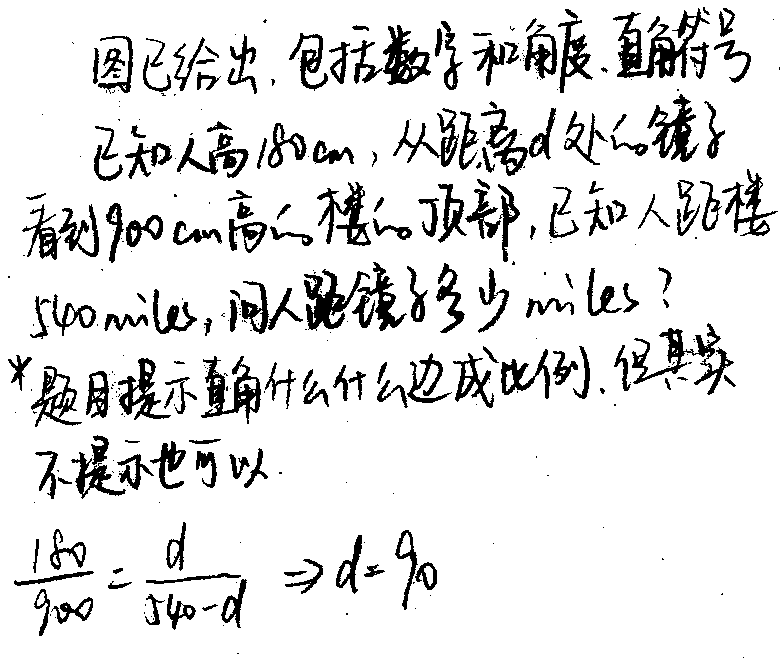 图已给出，包括数字和角度、直角符号
已知人高180cm，从距离d处的镜子
看到900cm高的楼的顶部，已知人距楼
540miles，问人距镜子多少miles？
*题目提示直角什么什么边成比例、但其实
不提示也可以.
180/900 = d/540-d ⇒ d=90